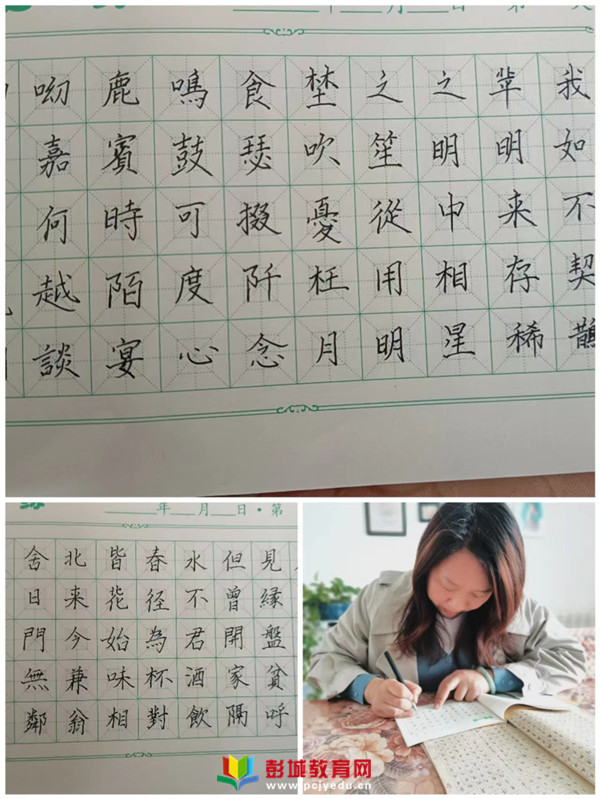 月 日 第
呦鹿鳴食埜之之苹我
嘉賓鼓瑟吹笙明明如
何時可掇憂從中来不
越陌度阡枉用相存契
談宴心念月明星稀鵲
年 月 日·第
舍北皆春水但見
日来花径不曾緣
門今始為君開盤
無兼味杯酒家貧
鄰翁相對飲隔呼
彭城教育网
www.pcjyedu.cn